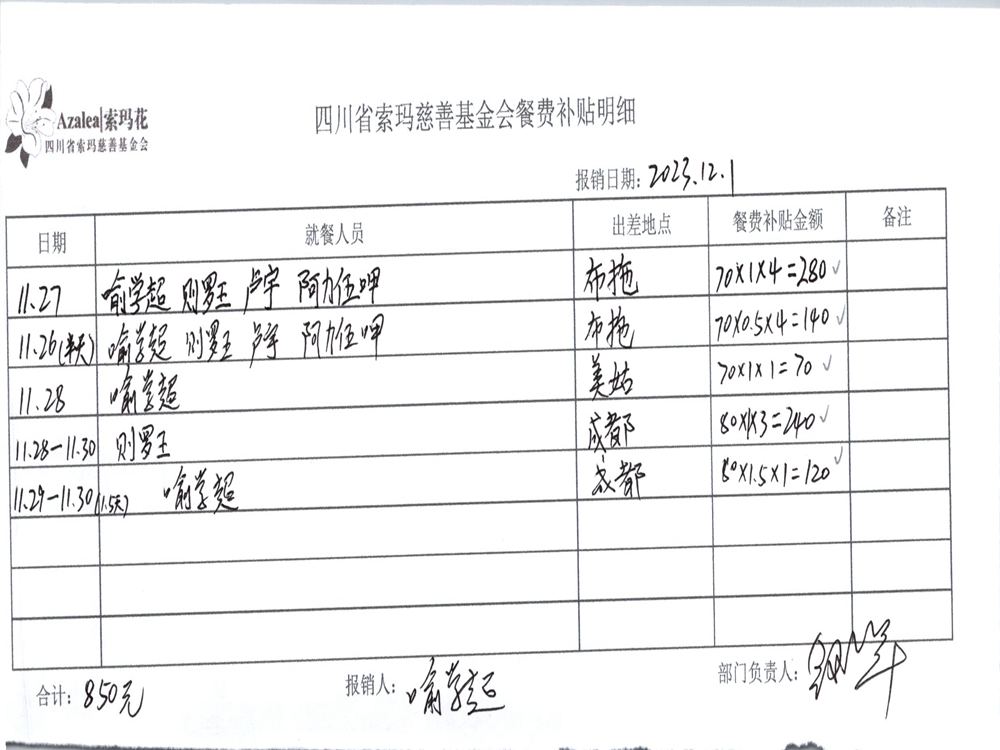 Azalea|索玛花
四川省索玛慈善基金会
四川省索玛慈善基金会餐费补贴明细
报销日期: 2023.12.1
日期 就餐人员 出差地点 餐费补贴金额 备注
11.27 喻学超 则罗王 卢宇 阿力伍呷 布拖 70×1×4=280
11.26(半天) 喻学超 则罗王 卢宇 阿力伍呷 布拖 70×0.5×4=140
11.28 喻学超 美姑 70×1×1=70
11.28-11.30 则罗王 成都 80×1×3=240
11.29-11.30(1.5天) 喻学超 成都 80×1.5×1=120
合计: 850元 报销人: 喻学超 部门负责人: